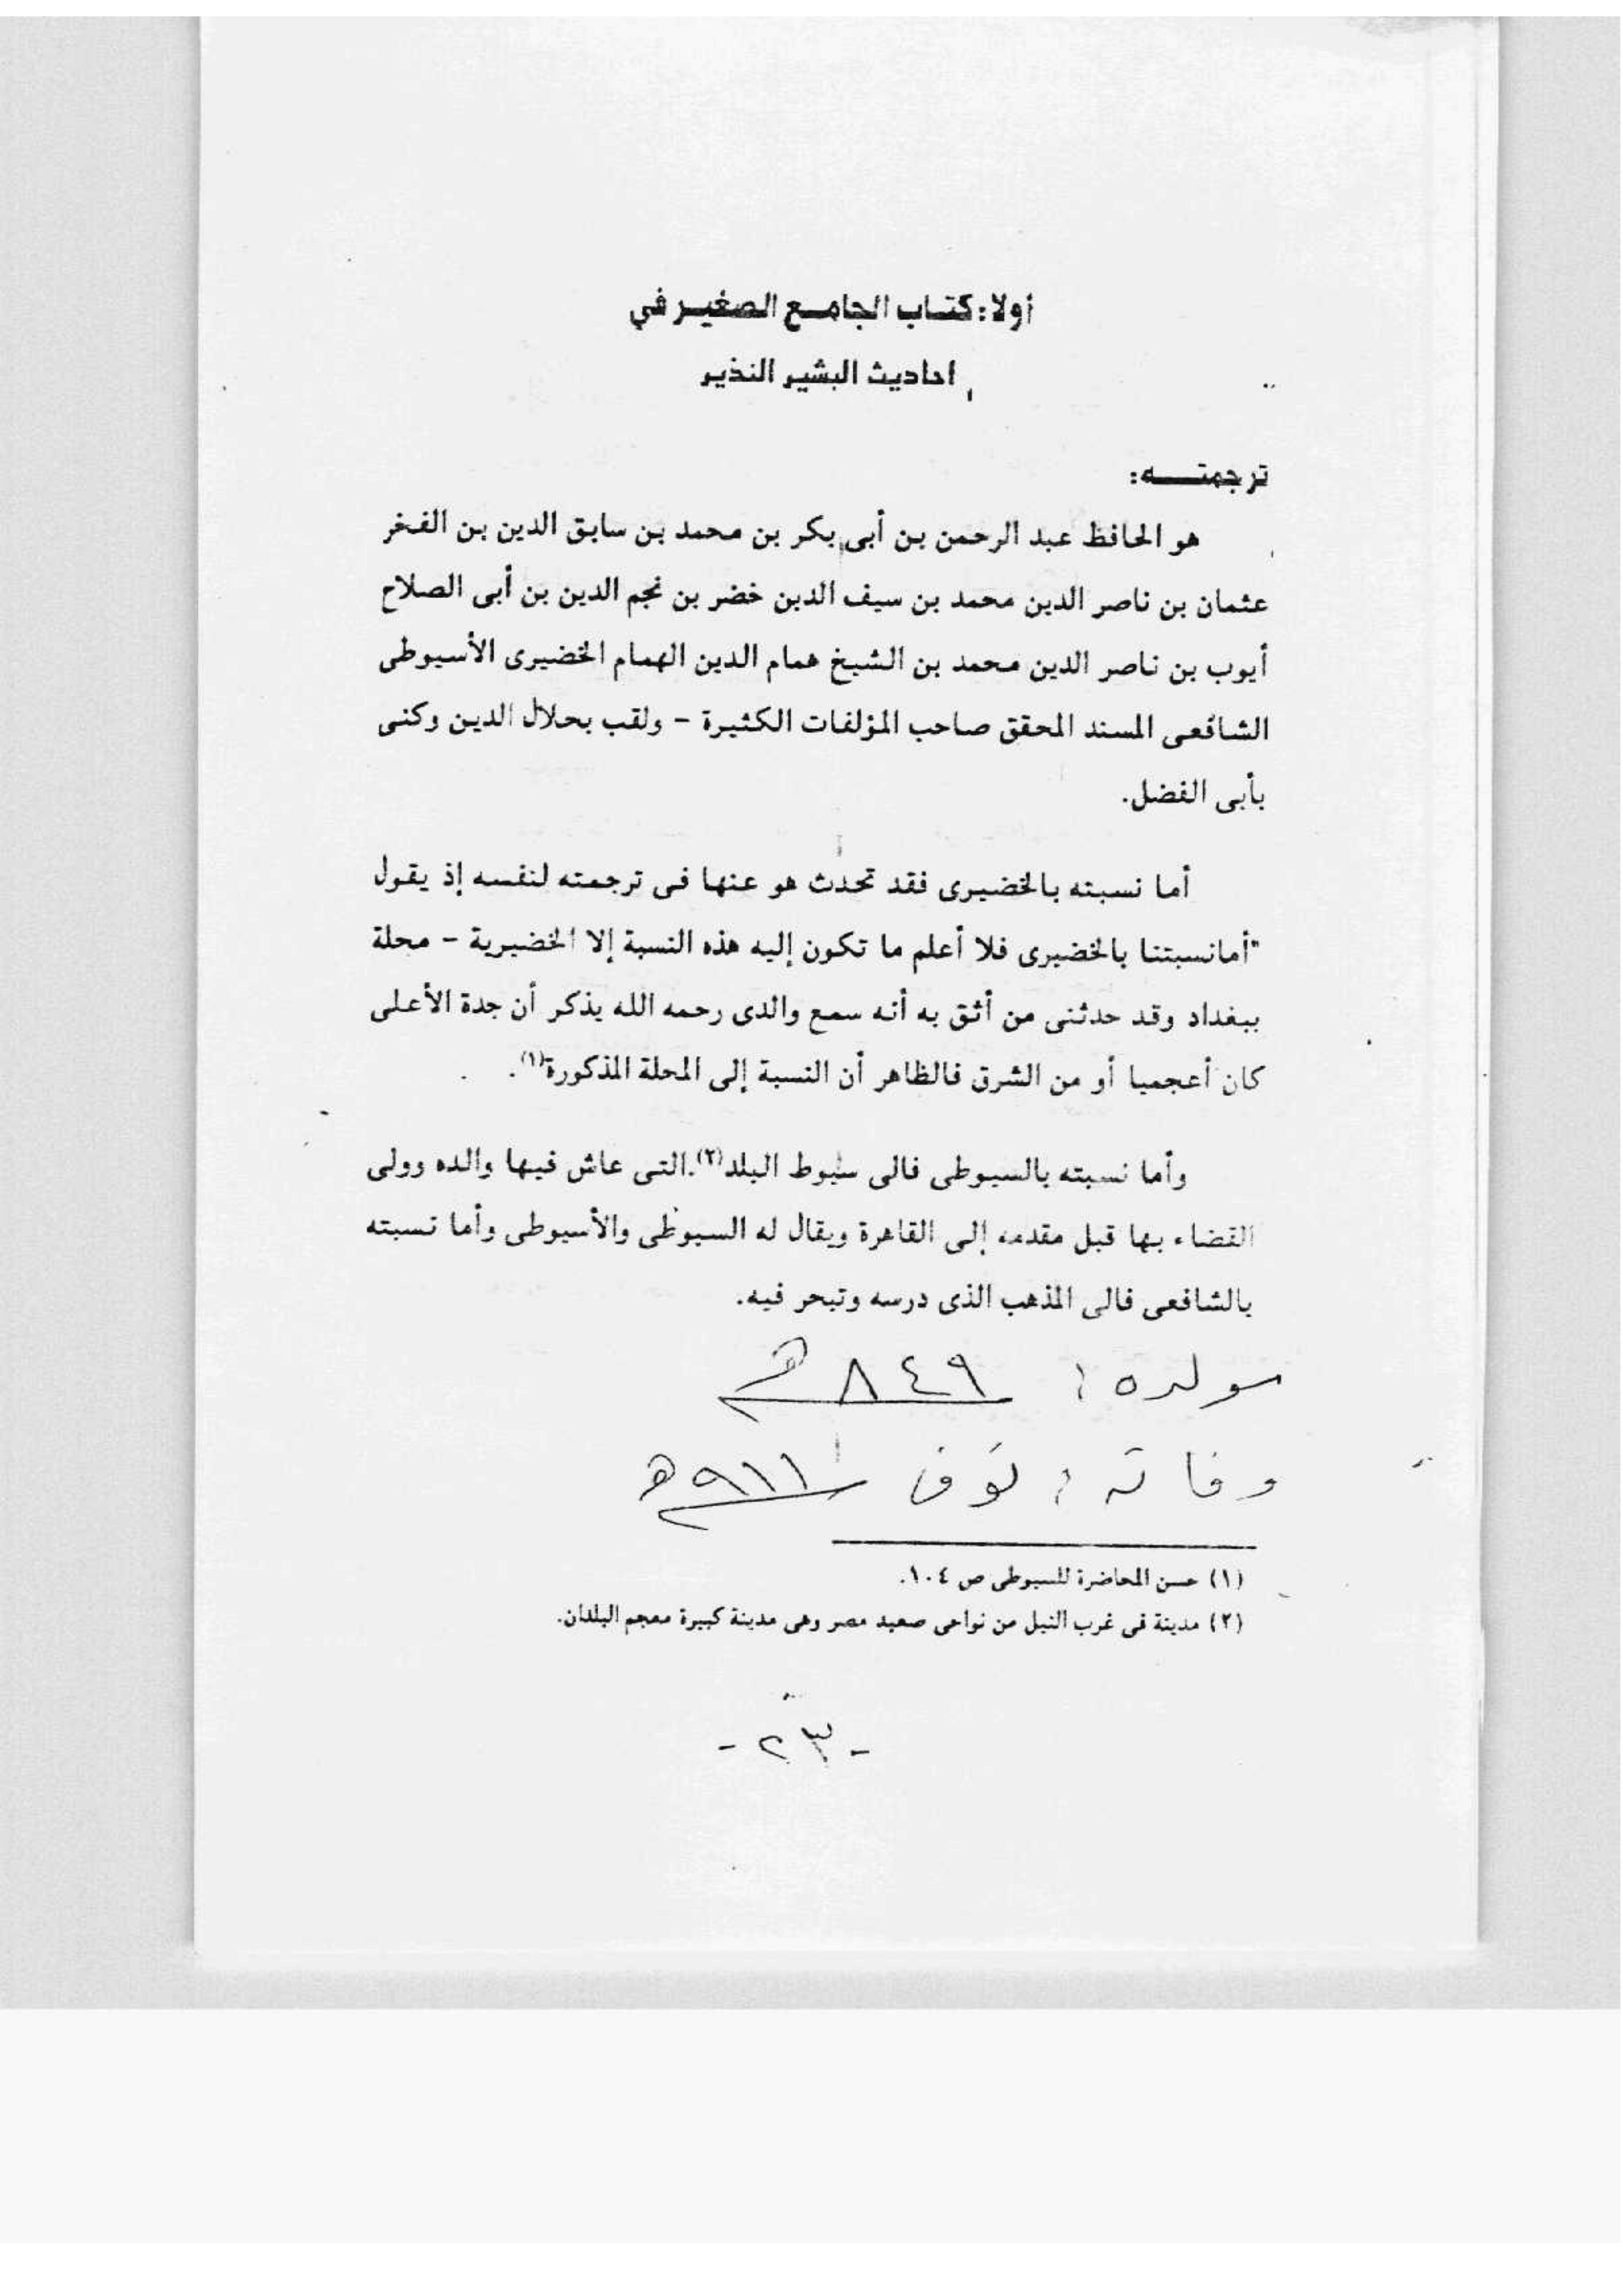 أولا: كتاب الجامع الصغير في
احاديث البشير النذير
ترجمته:
هو الحافظ عبد الرحمن بن أبى بكر بن محمد بن سابق الدين بن الفخر
عثمان بن ناصر الدين محمد بن سيف الدين خضر بن نجم الدين بن أبى الصلاح
أيوب بن ناصر الدين محمد بن الشيخ همام الدين الهمام الخضيرى الأسيوطى
الشافعى المسند المحقق صاحب المؤلفات الكثيرة - ولقب بحلال الدين وكنى
بأبى الفضل.
أما نسبته بالخضيرى فقد تحدث هو عنها فى ترجمته لنفسه إذ يقول
"أمانسبتنا بالخضيرى فلا أعلم ما تكون إليه هذه النسبة إلا الخضيرية - محلة
ببغداد وقد حدثنى من أثق به أنه سمع والدى رحمه الله يذكر أن جدة الأعلى
كان أعجميا أو من الشرق فالظاهر أن النسبة إلى المحلة المذكورة(١).
وأما نسبته بالسيوطى فالى سيوط البلد(٢).التى عاش فيها والده وولى
القضاء بها قبل مقدمه إلى القاهرة ويقال له السيوطى والأسيوطى وأما نسبته
بالشافعى فالى المذهب الذى درسه وتبحر فيه.
مولده: ٨٤٩ هـ
وفاته: توفى ٩١١ هـ
(١) حسن المحاضرة للسيوطى ص ١٠٤.
(٢) مدينة فى غرب النيل من نواحى صعيد مصر وهى مدينة كبيرة معجم البلدان.
- ٢٣ -